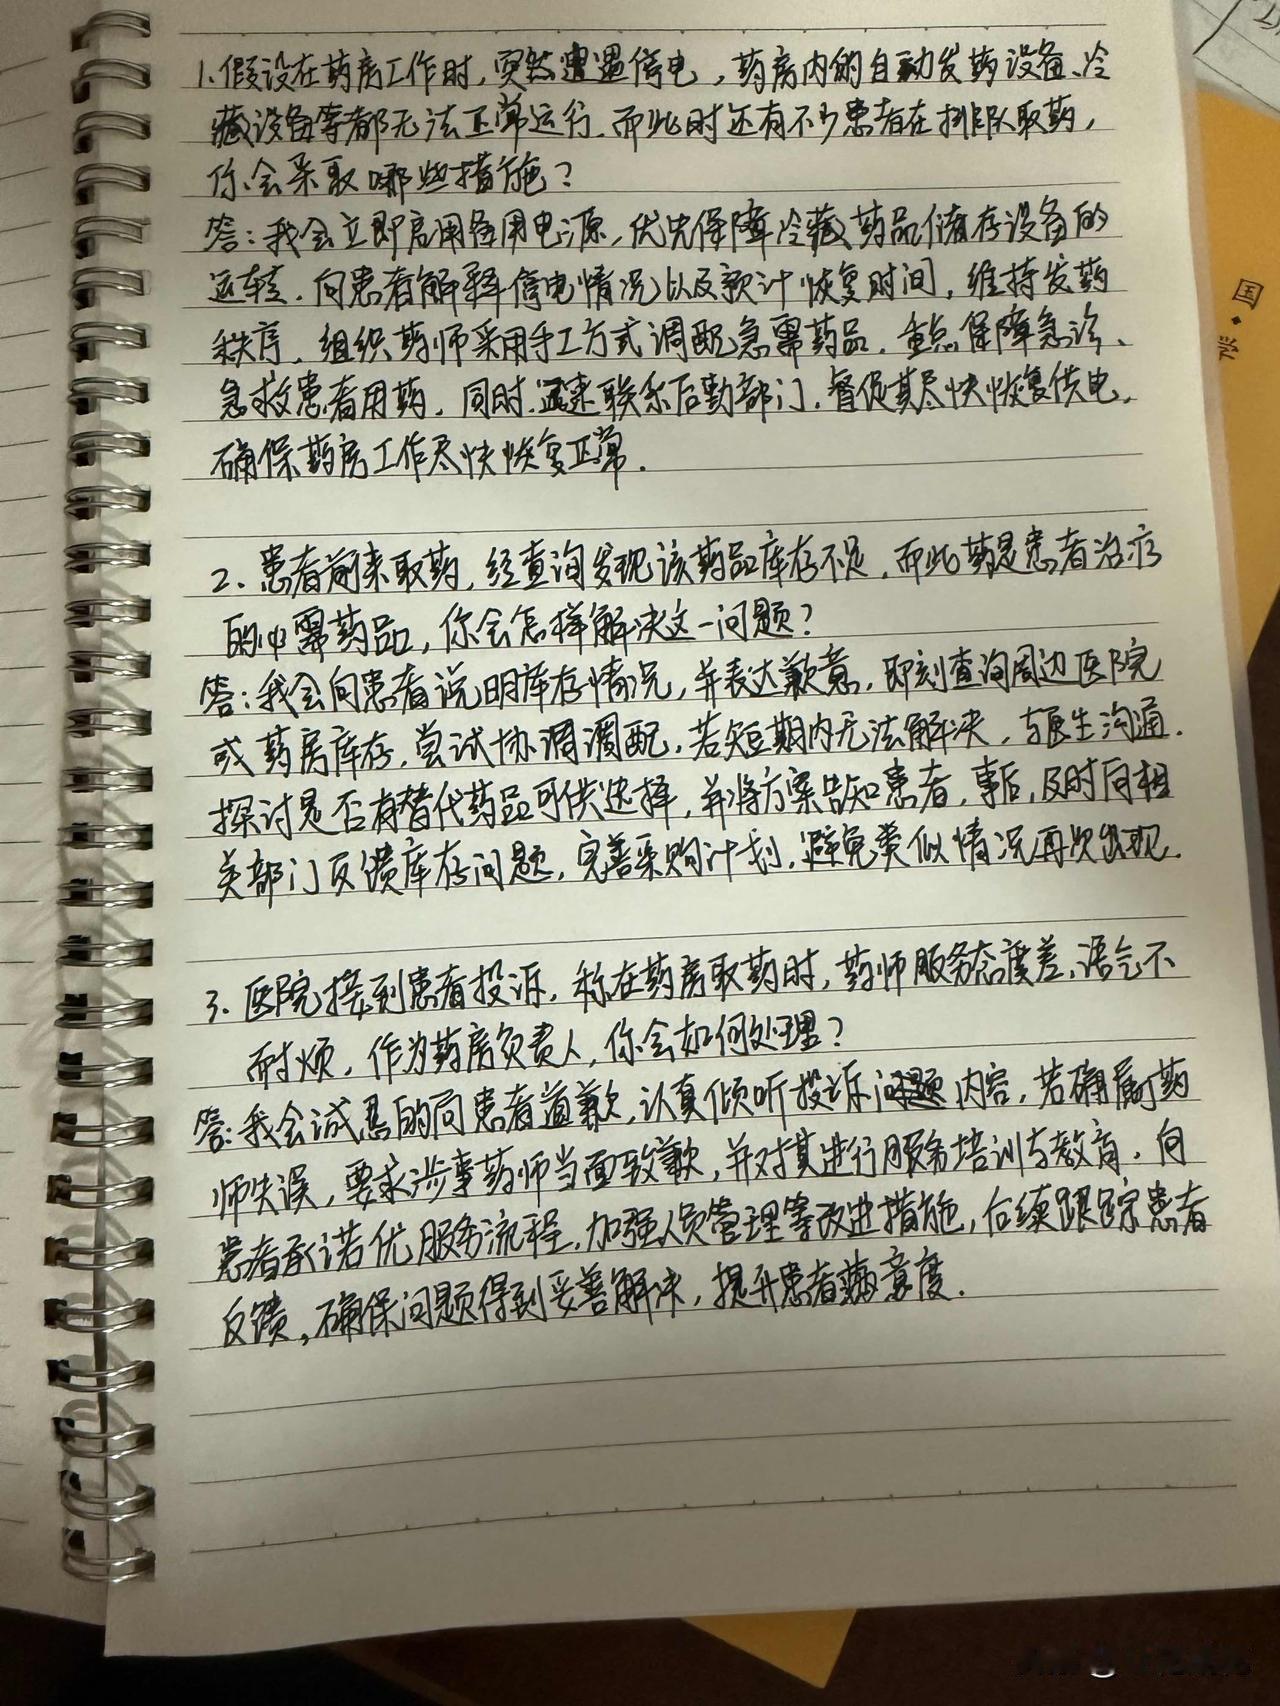 1.假设在药房工作时,突然遭遇停电,药房内的自动发药设备、冷
藏设备等都无法正常运行.而此时还有不少患者在排队取药,
你会采取哪些措施?
答:我会立即启用备用电源,优先保障冷藏药品储存设备的
运转.向患者解释停电情况以及预计恢复时间,维持发药
秩序,组织药师采用手工方式调配急需药品.重点保障急诊、
急救患者用药,同时.迅速联系后勤部门.督促其尽快恢复供电,
确保药房工作尽快恢复正常.
2.患者前来取药,经查询发现该药品库存不足,而此药是患者治疗
的必需药品,你会怎样解决这一问题?
答:我会向患者说明库存情况,并表达歉意,即刻查询周边医院
或药房库存,尝试协调调配,若短期内无法解决,与医生沟通.
探讨是否有替代药品可供选择,并将方案告知患者,事后,及时向相
关部门反馈库存问题,完善采购计划,避免类似情况再次出现.
3.医院接到患者投诉,称在药房取药时,药师服务态度差,语气不
耐烦,作为药房负责人,你会如何处理?
答:我会诚恳的向患者道歉,认真倾听投诉问题内容,若确属药
师失误,要求涉事药师当面致歉,并对其进行服务培训与教育.向
患者承诺优服务流程,加强人员管理等改进措施,后续跟踪患者
反馈,确保问题得到妥善解决,提升患者满意度.
国·